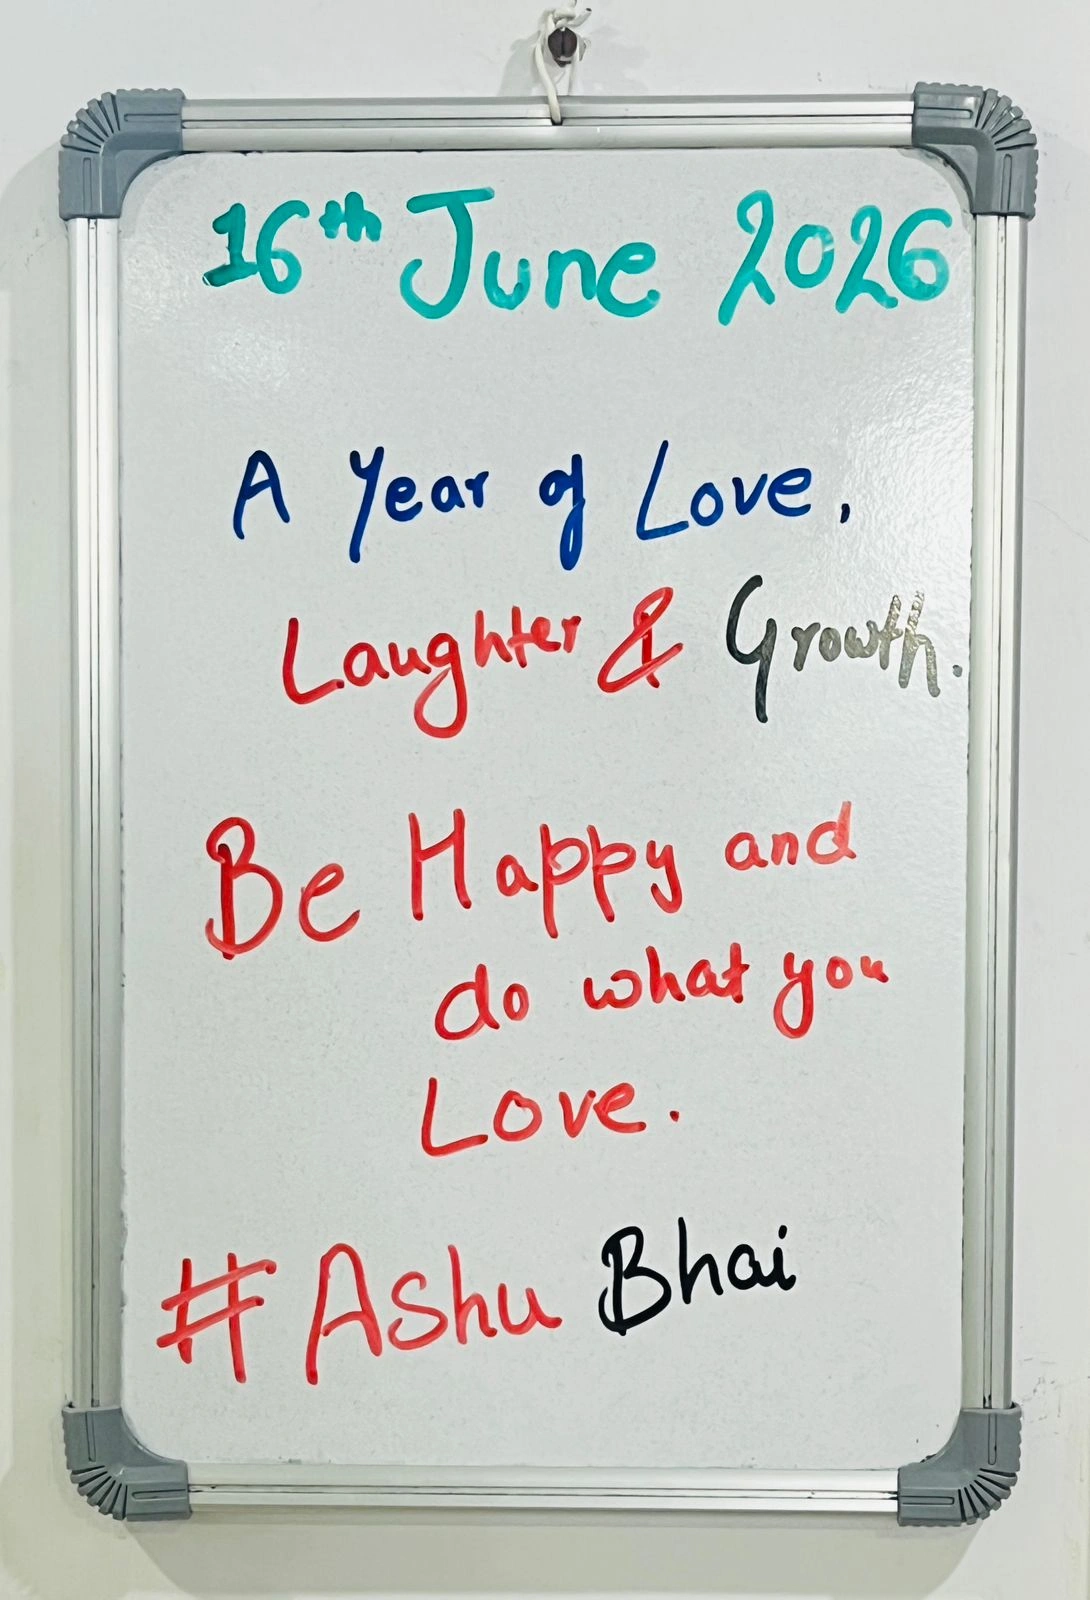 16th June 2026
A Year of Love,
Laughter & Growth.
Be Happy and
do what you
Love.
#Ashu Bhai